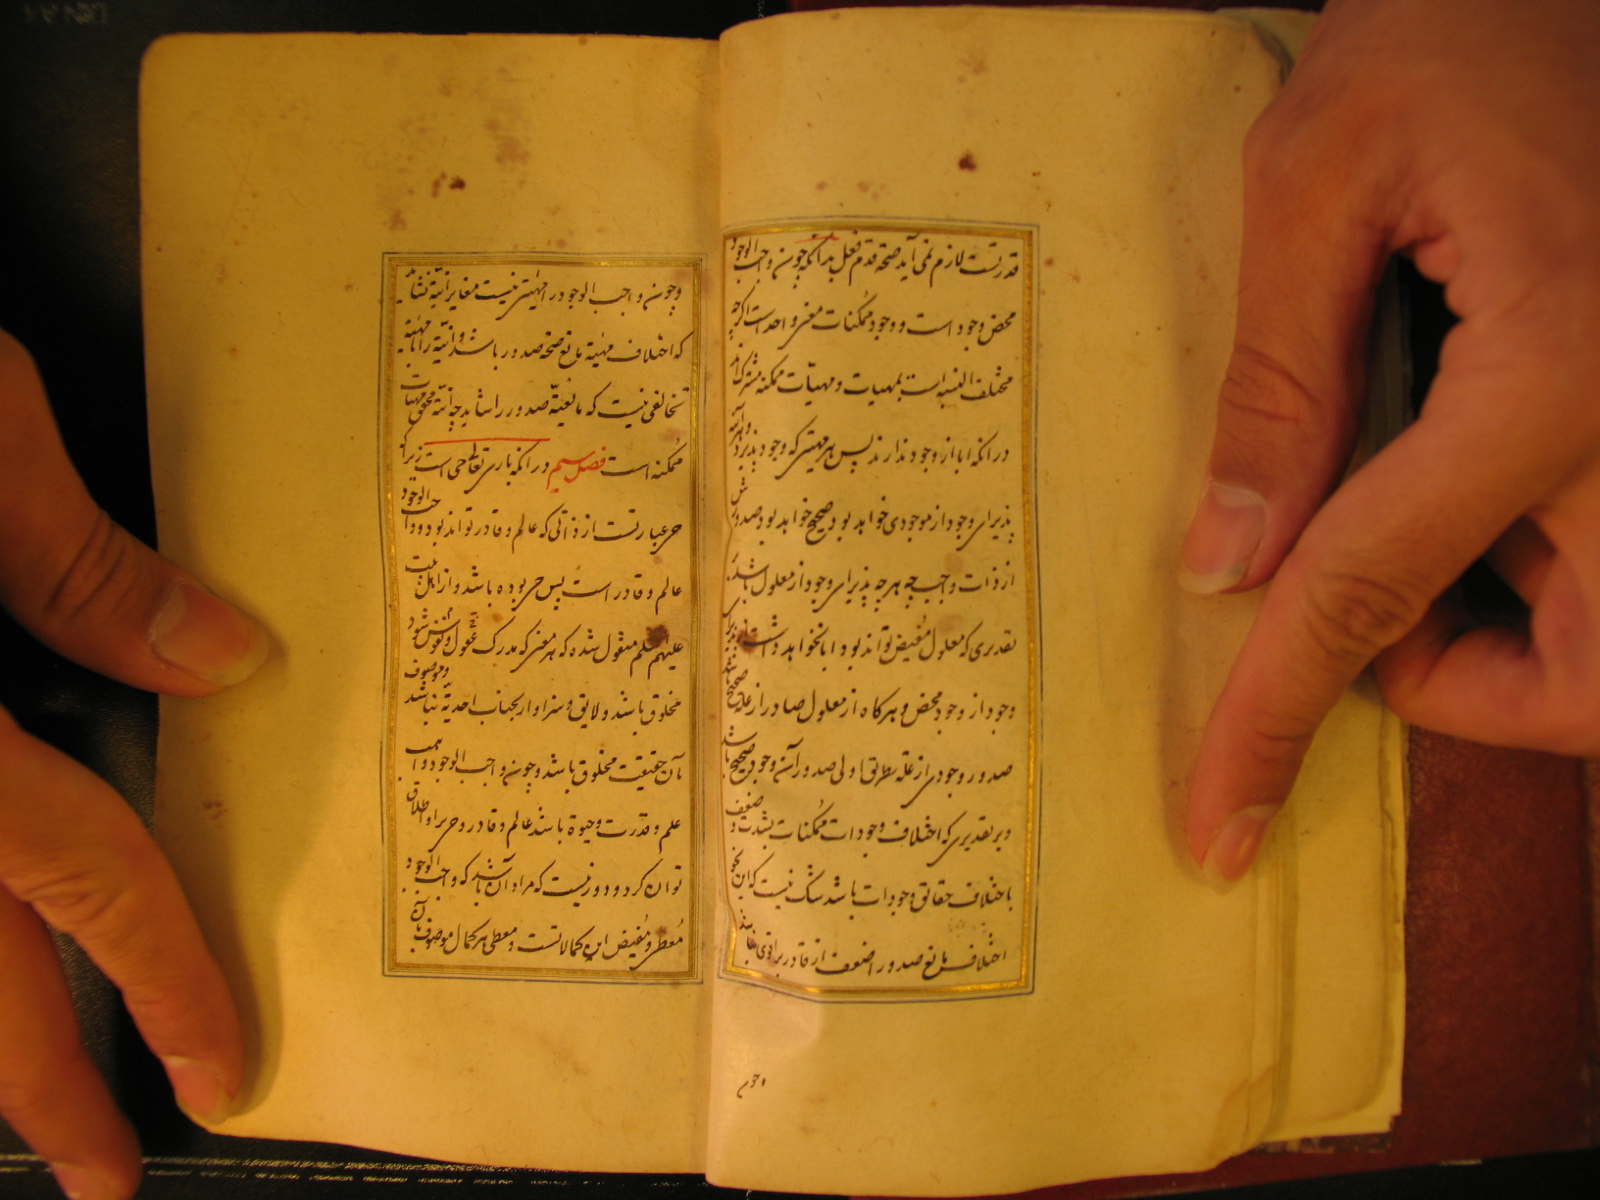 قدرتست لازم نمی آید صحة قدم فعل بدانکه چون واجب الوجود
محض وجود است و وجود ممکنات معنی واحد است اگرچه
مختلف النسبه است بمهیات و مهیّات ممکنه مشترک اند
در آنکه ابا از وجود ندارند پس هر مهیتی که وجود پذیرد و هر آینه
پذیرای وجود از موجودی خواهد بود صحیح خواهد بود صدورش
از ذات واجب چه هر چه پذیرای وجود از معلول باشد بر
تقدیری که معلول مفیض تواند بود ابا نخواهد داشت از پذیرفتن
وجود از وجود محض و هرگاه از معلول صادر از علة صحیح باشد
صدور وجودی از علة بطریق اولی صدور آن وجود صحیح باشد
و بر تقدیری که اختلاف وجودات ممکنات بشدت و ضعف
یا اختلاف حقائق وجودات باشد شک نیست که این نحو
اختلاف مانع صدور اضعف از قادر بر اقوی نباشد
وچون
وچون واجب الوجود را مهیتی نیست مغایر انیّة نشاید
که اختلاف مهیّة مانع صحة صدور باشد و انیّة را با مهیّة
تخالفی نیست که مانعیّة صدور را شاید چه انیّة محقق مهیات
ممکنه است فصل سیم در آنکه باری تعالی حی است زیرا که
حی عبارتست از ذاتی که عالم و قادر تواند بود و واجب الوجود
عالم و قادر است پس حی بوده باشد و از اهل بیت
علیهم السلم منقول شده که هر معنی که مدرک عقول و نفوس شود
مخلوق باشد و لایق و سزاوار بجناب احدیّة نباشد و موصوف
بآن حقیقت مخلوق باشد و چون واجب الوجود واهب
علم و قدرت و حیوة باشد عالم و قادر و حی بر او اطلاق
توان کرد و دور نیست که مراد آن باشد که واجب الوجود
مُعطی و مُفیض این کمالاتست و معطی هر کمال موصوف بآن